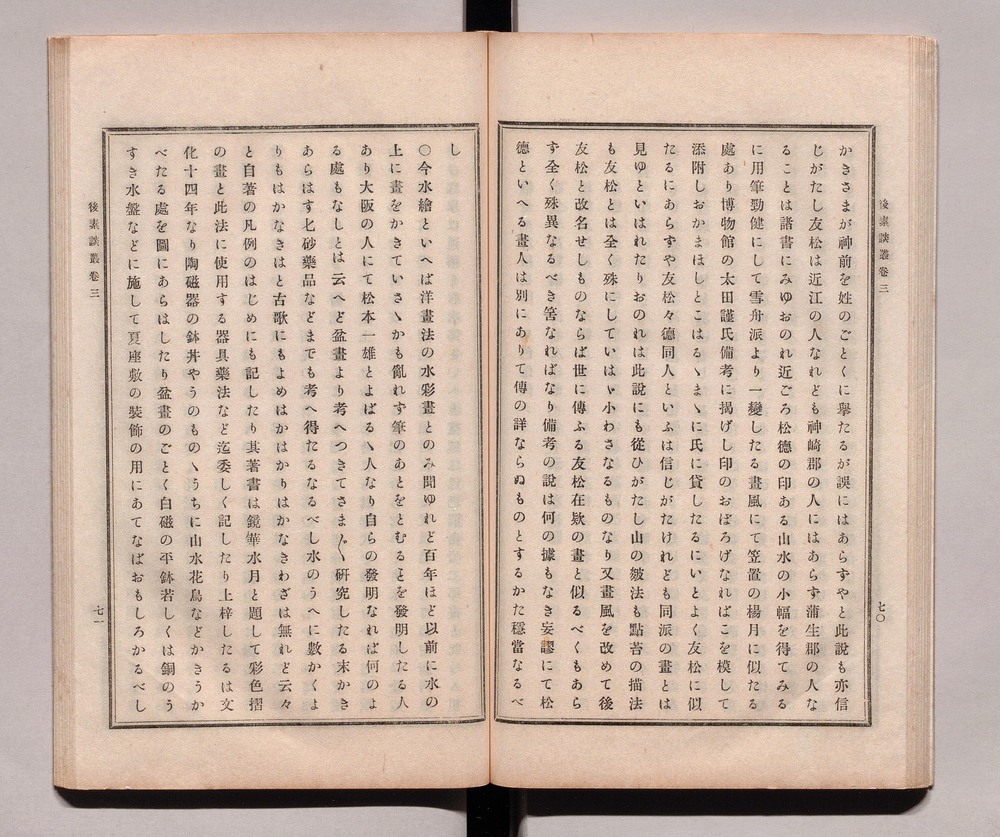 後素談叢卷三
七〇
かきさまが神前を姓のごとくに擧たるが誤にはあらずやと此說も亦信
じがたし友松は近江の人なれども神崎郡の人にはあらず蒲生郡の人な
ることは諸書にみゆおのれ近ごろ松德の印ある山水の小幅を得てみる
に用筆勁健にして雪舟派より一變したる畫風にて笠置の楊月に似たる
處あり博物館の太田謹氏備考に揭げし印のおぼろげなればこを模して
添附しおかまほしとこはるゝまゝに氏に貸したるにいとよく友松に似
たるにあらずや友松々德同人といふは信じがたけれども同派の畫とは
見ゆといはれたりおのれは此說にも從ひがたし山の皴法も點苔の描法
も友松とは全く殊にしていはゞ小わさなるものなり又畫風を改めて後
友松と改名せしものならば世に傳ふる友松在欵の畫と似るべくもあら
ず全く殊異なるべき筈なればなり備考の說は何の據もなき妄謬にて松
德といへる畫人は別にありて傳の詳ならぬものとするかた穩當なるべ
し
〇今水繪といへば洋畫法の水彩畫とのみ聞ゆれど百年ほど以前に水の
上に畫をかきていさゝかも亂れず筆のあとをとむることを發明したる人
あり大阪の人にて松本一雄とよばるゝ人なり自らの發明なれば何のよ
る處もなしとは云へど盆畫より考へつきてさま〲硏究したる末かき
あらはす七砂藥品などまでも考へ得たるなるべし水のうへに數かくよ
りもはかなきはと古歌にもよめはかはかりはかなきわざは無れど云々
と自著の凡例のはじめにも記したり其著書は鏡華水月と題して彩色摺
の畫と此法に使用する器具藥法など迄委しく記したり上梓したるは文
化十四年なり陶磁器の鉢丼やうのものゝうちに山水花鳥などかきうか
べたる處を圖にあらはしたり盆畫のごとく白磁の平鉢若しくは銅のう
すき水盤などに施して夏座敷の裝飾の用にあてなばおもしろかるべし
後素談叢卷三
七一